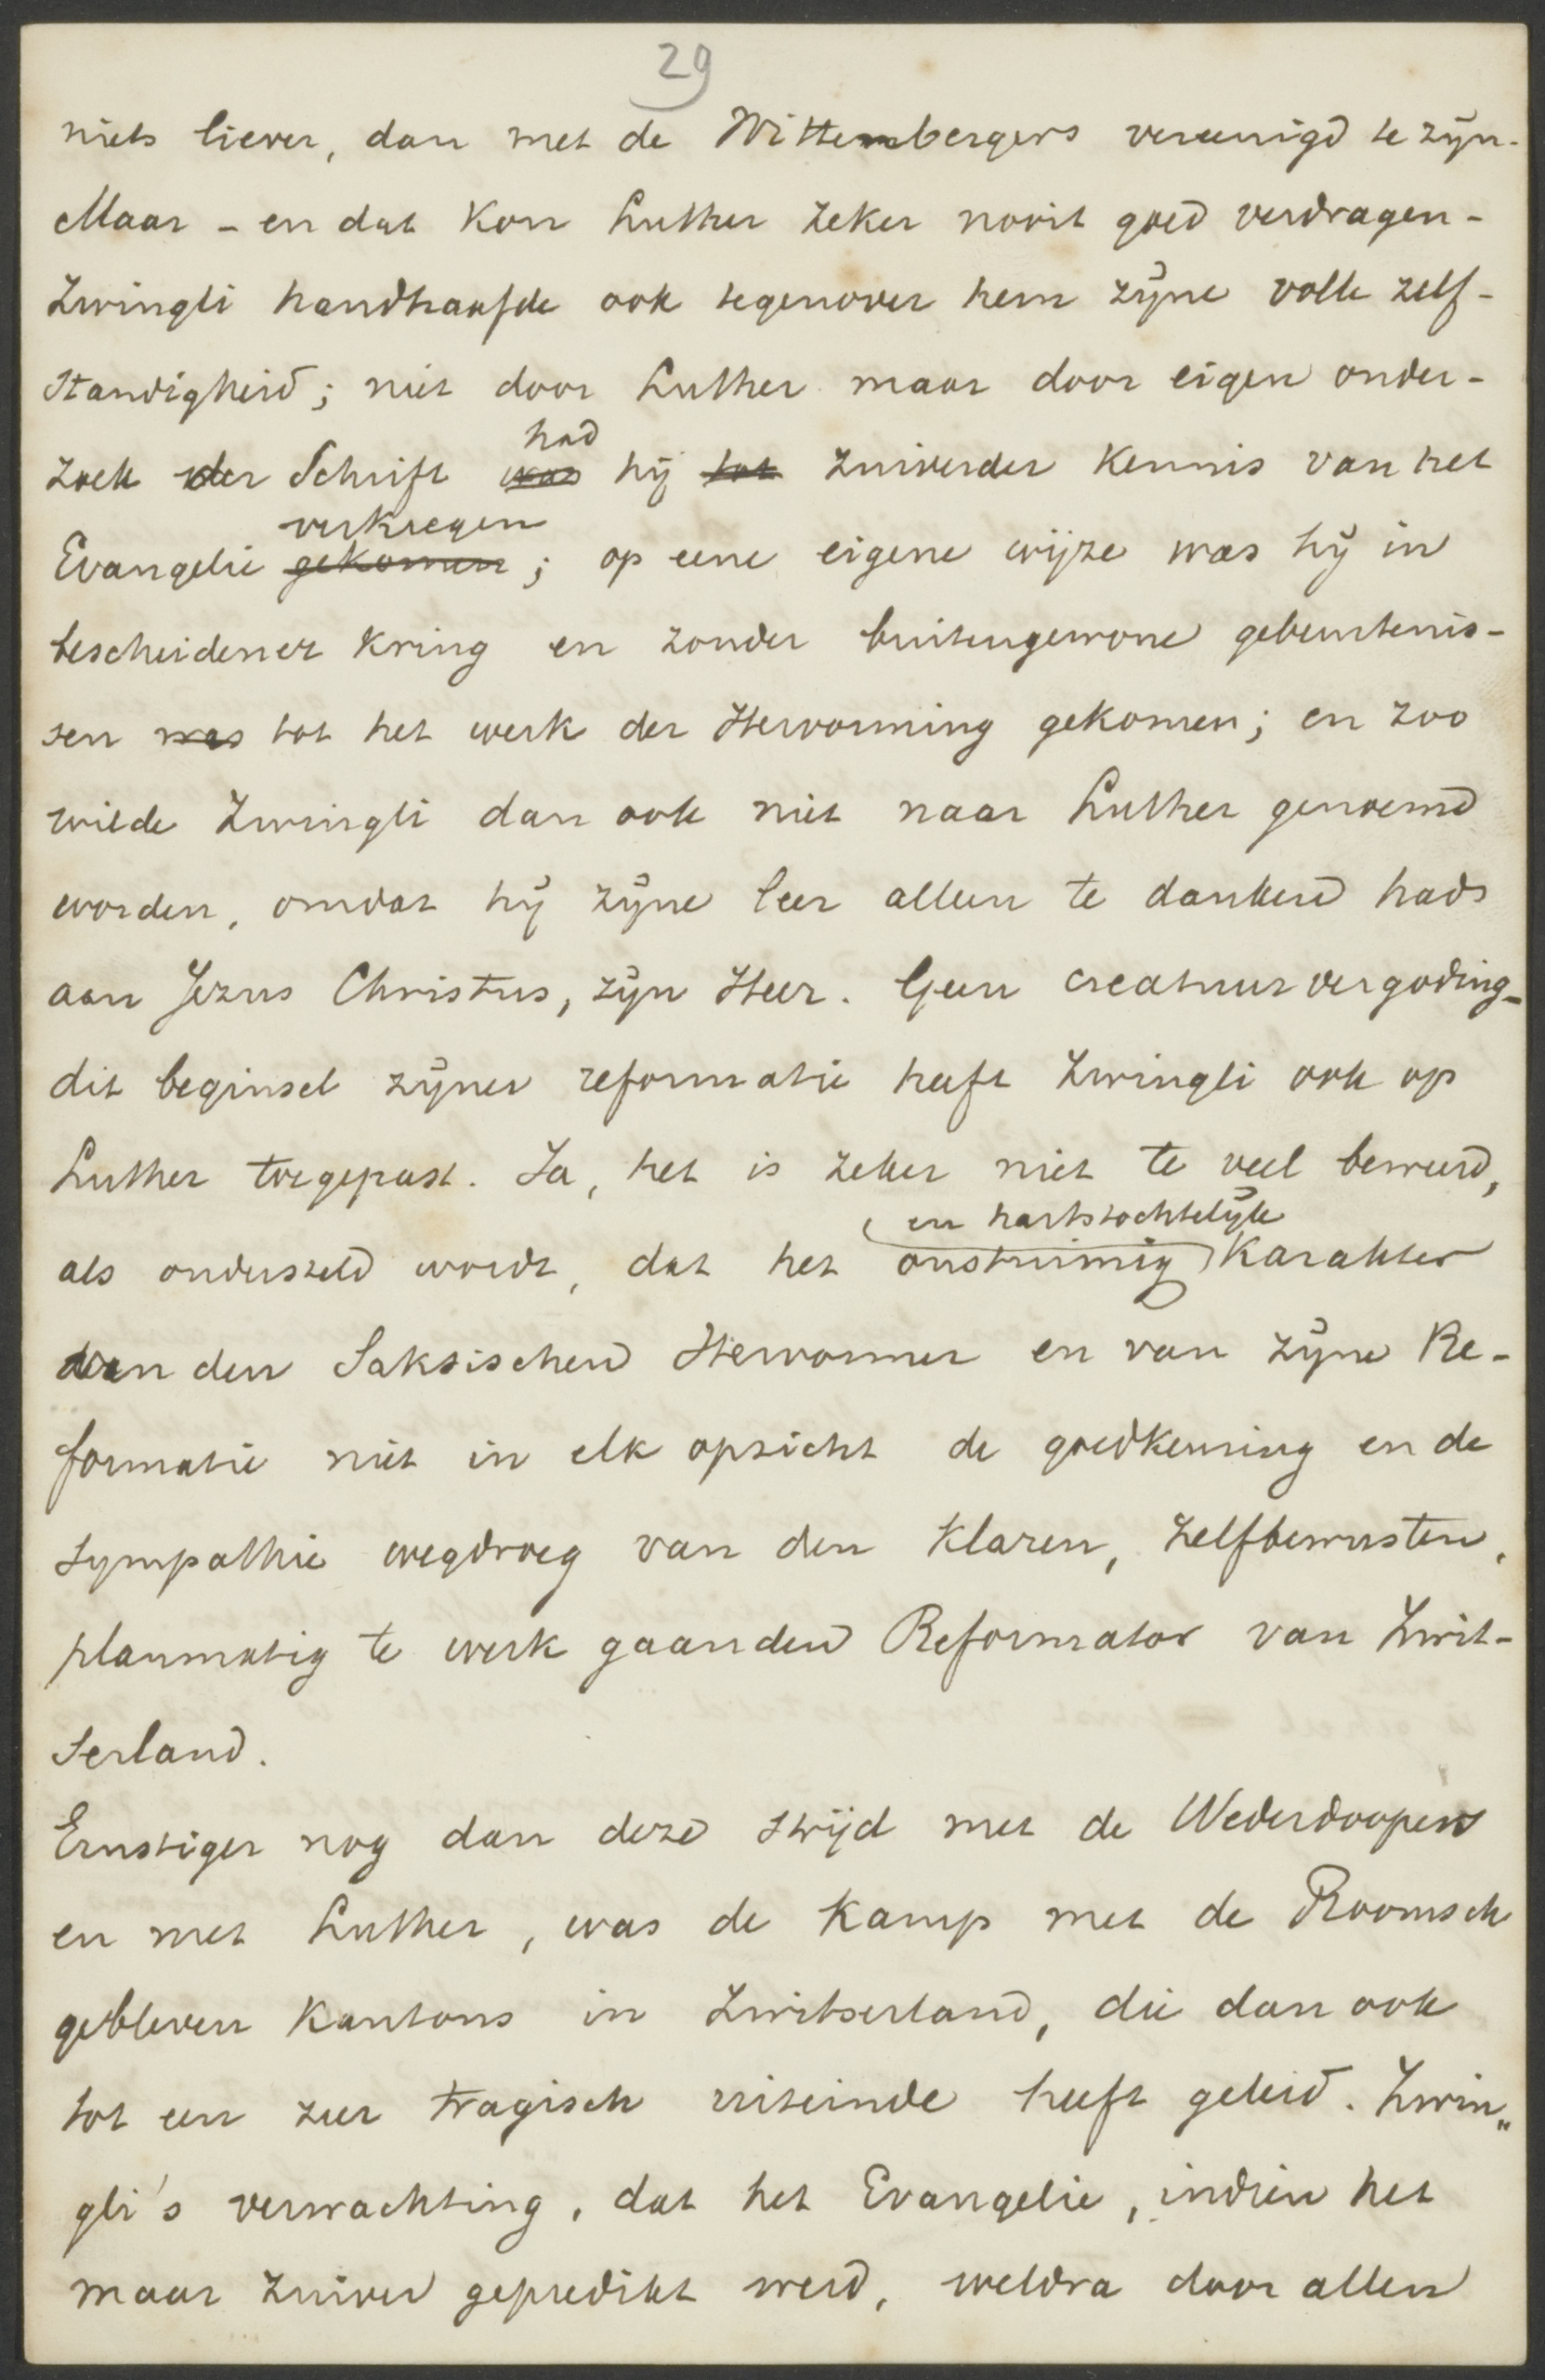 29
niets liever, dan met de Wittenbergers vereenigd te zijn.
Maar – en dat kon Luther zeker nooit goed verdragen –
Zwingli handhaafde ook tegenover hem zijne volle zelf-
standigheid; niet door Luther maar door eigen onder-
had
zoek der Schrift was hij tot zuiverder kennis van het
verkregen
Evangelie gekomen; op eene eigene wijze was hij in
bescheidener kring en zonder buitengewone gebeurtenis-
sen was tot het werk der Hervorming gekomen; en zoo
wilde Zwingli dan ook niet naar Luther genoemd
worden, omdat hij zijne leer alleen te danken had
aan Jezus Christus, zijn Heer. Geen creatuurvergoding –
dit beginsel zijner reformatie heeft Zwingli ook op
Luther toegepast. Ja, het is zeker niet te veel beweerd,
en hartstochtelijk
als ondersteld wordt, dat het onstuimig karakter
van den Saksischen Hervormer en van zijne Re-
formatie niet in elk opzicht de goedkeuring en de
sympathie wegdroeg van den klaren, zelfbewusten,
planmatig te werk gaanden Reformator van Zwit-
serland.
Ernstiger nog dan deze strijd met de Wederdoopers
en met Luther, was de kamp met de Roomsch
gebleven kantons in Zwitserland, die dan ook
tot een zeer tragisch uiteinde heeft geleid. Zwin„
gli's verwachting, dat het Evangelie, indien het
maar zuiver gepredikt werd, weldra door allen